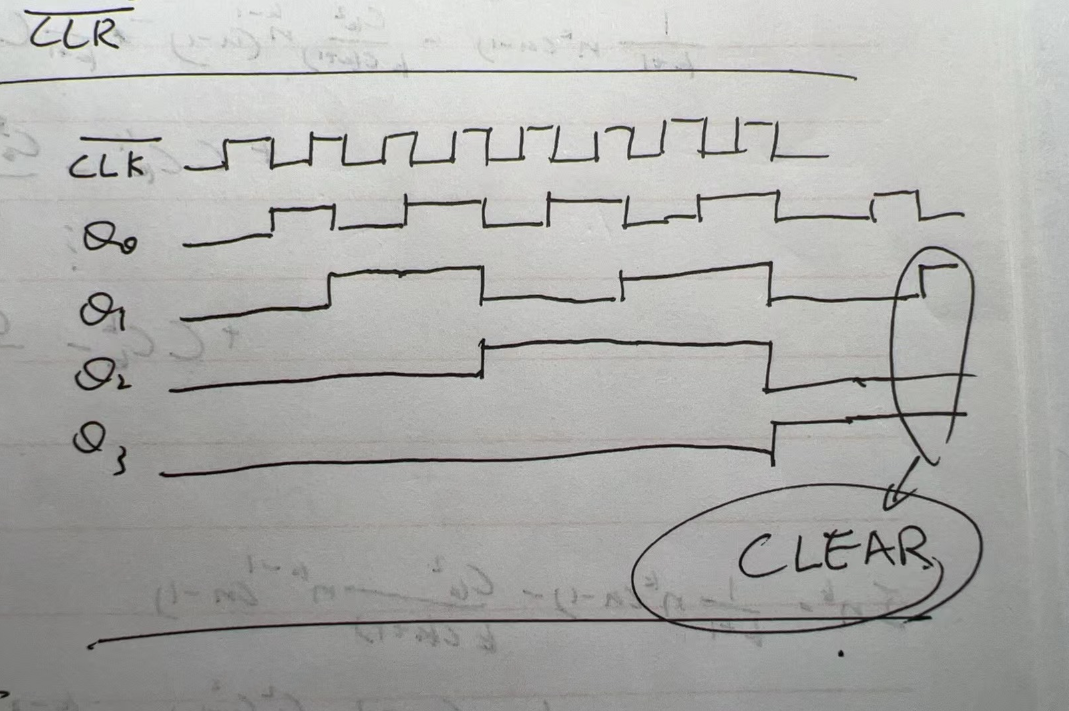 C̅L̅R̅
C̅L̅K̅
Q₀
Q₁
Q₂
Q₃
CLEAR